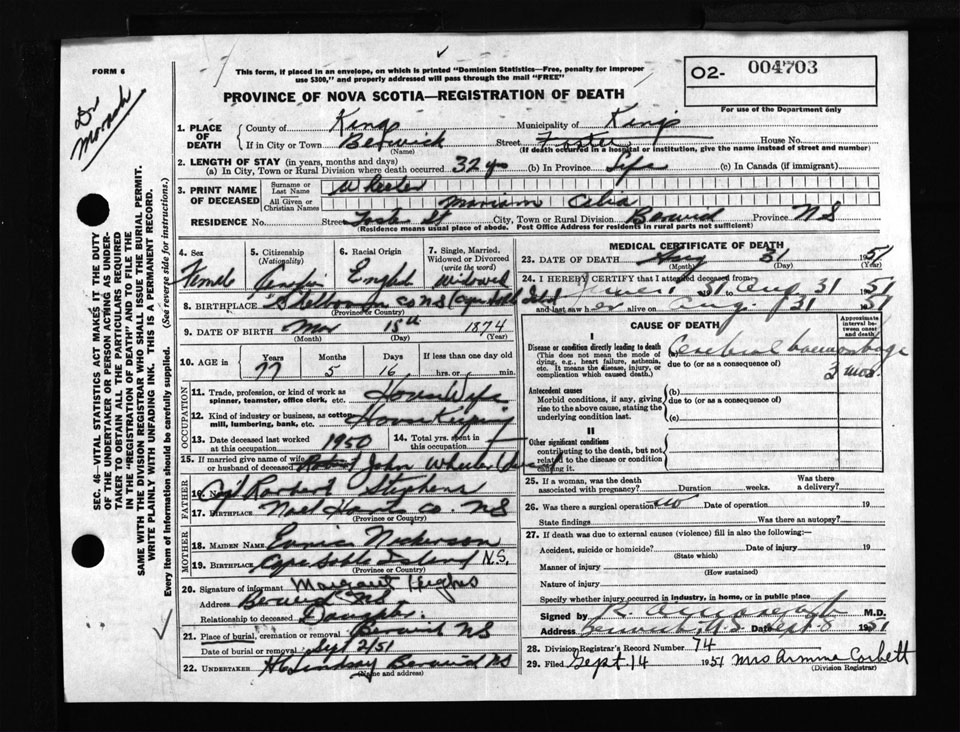 FORM 6
Dr Morash
This form, if placed in an envelope, on which is printed "Dominion Statistics—Free, penalty for improper
use $300," and properly addressed will pass through the mail "FREE"
02- 004703
For use of the Department only
PROVINCE OF NOVA SCOTIA—REGISTRATION OF DEATH
SEC. 46—VITAL STATISTICS ACT MAKES IT THE DUTY
OF THE UNDERTAKER OR PERSON ACTING AS UNDER-
TAKER TO OBTAIN ALL THE PARTICULARS REQUIRED
IN THE "REGISTRATION OF DEATH" AND TO FILE THE
SAME WITH THE DIVISION REGISTRAR WHO SHALL ISSUE THE BURIAL PERMIT.
WRITE PLAINLY WITH UNFADING INK. THIS IS A PERMANENT RECORD.
Every item of Information should be carefully supplied. (See reverse side for instructions.)
1. PLACE OF DEATH County of Kings Municipality of Kings
If in City or Town Berwick Street Foster House No.
(Name) (If death occurred in a hospital or institution, give the name instead of street and number)
2. LENGTH OF STAY (in years, months and days)
(a) In City, Town or Rural Division where death occurred 32 ys (b) In Province Life (c) In Canada (if immigrant)
3. PRINT NAME OF DECEASED Surname or Last Name Wheeler
All Given or Christian Names Mariam Celia
RESIDENCE No. Street Foster St City, Town or Rural Division Berwick Province NS
(Residence means usual place of abode. Post Office Address for residents in rural parts not sufficient)
4. Sex 5. Citizenship (Nationality) 6. Racial Origin 7. Single, Married, Widowed or Divorced (write the word)
Female English Widowed
8. BIRTHPLACE Shelburne Co NS (Cape Sable Island)
(Province or Country)
9. DATE OF BIRTH Mar 15th 1874
(Month) (Day) (Year)
10. AGE in Years Months Days If less than one day old
77 5 16 hrs. or min.
OCCUPATION
11. Trade, profession, or kind of work as spinner, teamster, office clerk, etc. House Wife
12. Kind of industry or business, as cotton mill, lumbering, bank, etc. House Keeping
13. Date deceased last worked at this occupation 1950 14. Total yrs. spent in this occupation
15. If married give name of wife or husband of deceased John Wheeler
FATHER
16. Name Capt Robert Stephens
17. BIRTHPLACE Noel Hants Co. NS
(Province or Country)
MOTHER
18. MAIDEN NAME Eunice Nickerson
19. BIRTHPLACE Cape Sable Island N.S.
(Province or Country)
20. Signature of informant Margaret Hughes
Address Berwick NS
Relationship to deceased Daughter
21. Place of burial, cremation or removal Berwick NS
Date of burial or removal Sept 2/51
22. UNDERTAKER H C Lindsay Berwick NS
(Name and address)
MEDICAL CERTIFICATE OF DEATH
23. DATE OF DEATH Aug 31 1951
(Month) (Day) (Year)
24. I HEREBY CERTIFY that I attended deceased from
June 1 51 to Aug 31 1951
and last saw her alive on Aug. 31 1951
CAUSE OF DEATH Approximate interval between onset and death
I
Disease or condition directly leading to death Cerebral haemorrhage
(This does not mean the mode of dying, e.g., heart failure, asthenia, etc. It means the disease, injury, or complication which caused death.)
due to (or as a consequence of) 3 mos
Antecedent causes
Morbid conditions, if any, giving rise to the above cause, stating the underlying condition last.
(b)
due to (or as a consequence of)
(c)
II
Other significant conditions
contributing to the death, but not related to the disease or condition causing it.
25. If a woman, was the death associated with pregnancy? Duration weeks. Was there a delivery?
26. Was there a surgical operation? No Date of operation 19
State findings Was there an autopsy?
27. If death was due to external causes (violence) fill in also the following:—
Accident, suicide or homicide? Date of injury 19
(State which)
Manner of injury
(How sustained)
Nature of injury
Specify whether injury occurred in industry, in home, or in public place
Signed by M.D.
Address Berwick, N.S. Date Sept 8 1951
28. Division Registrar's Record Number 74
29. Filed Sept. 14 1951 Mrs Armme Corbett
(Division Registrar)